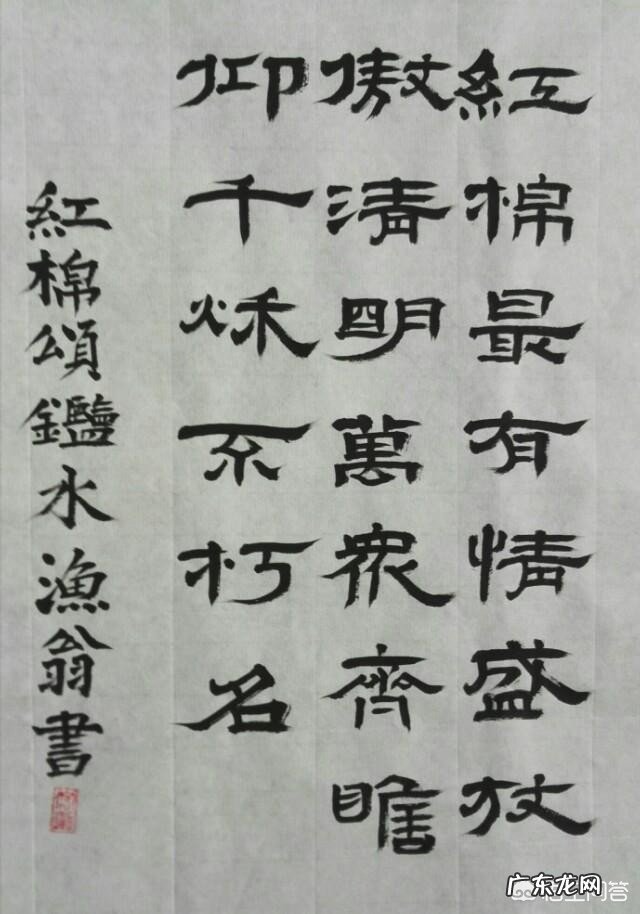 紅棉最有情盛放
傲清明萬眾齊瞻
仰千秌不朽名
紅棉頌鑑水漁翁書
广东龙网
问答